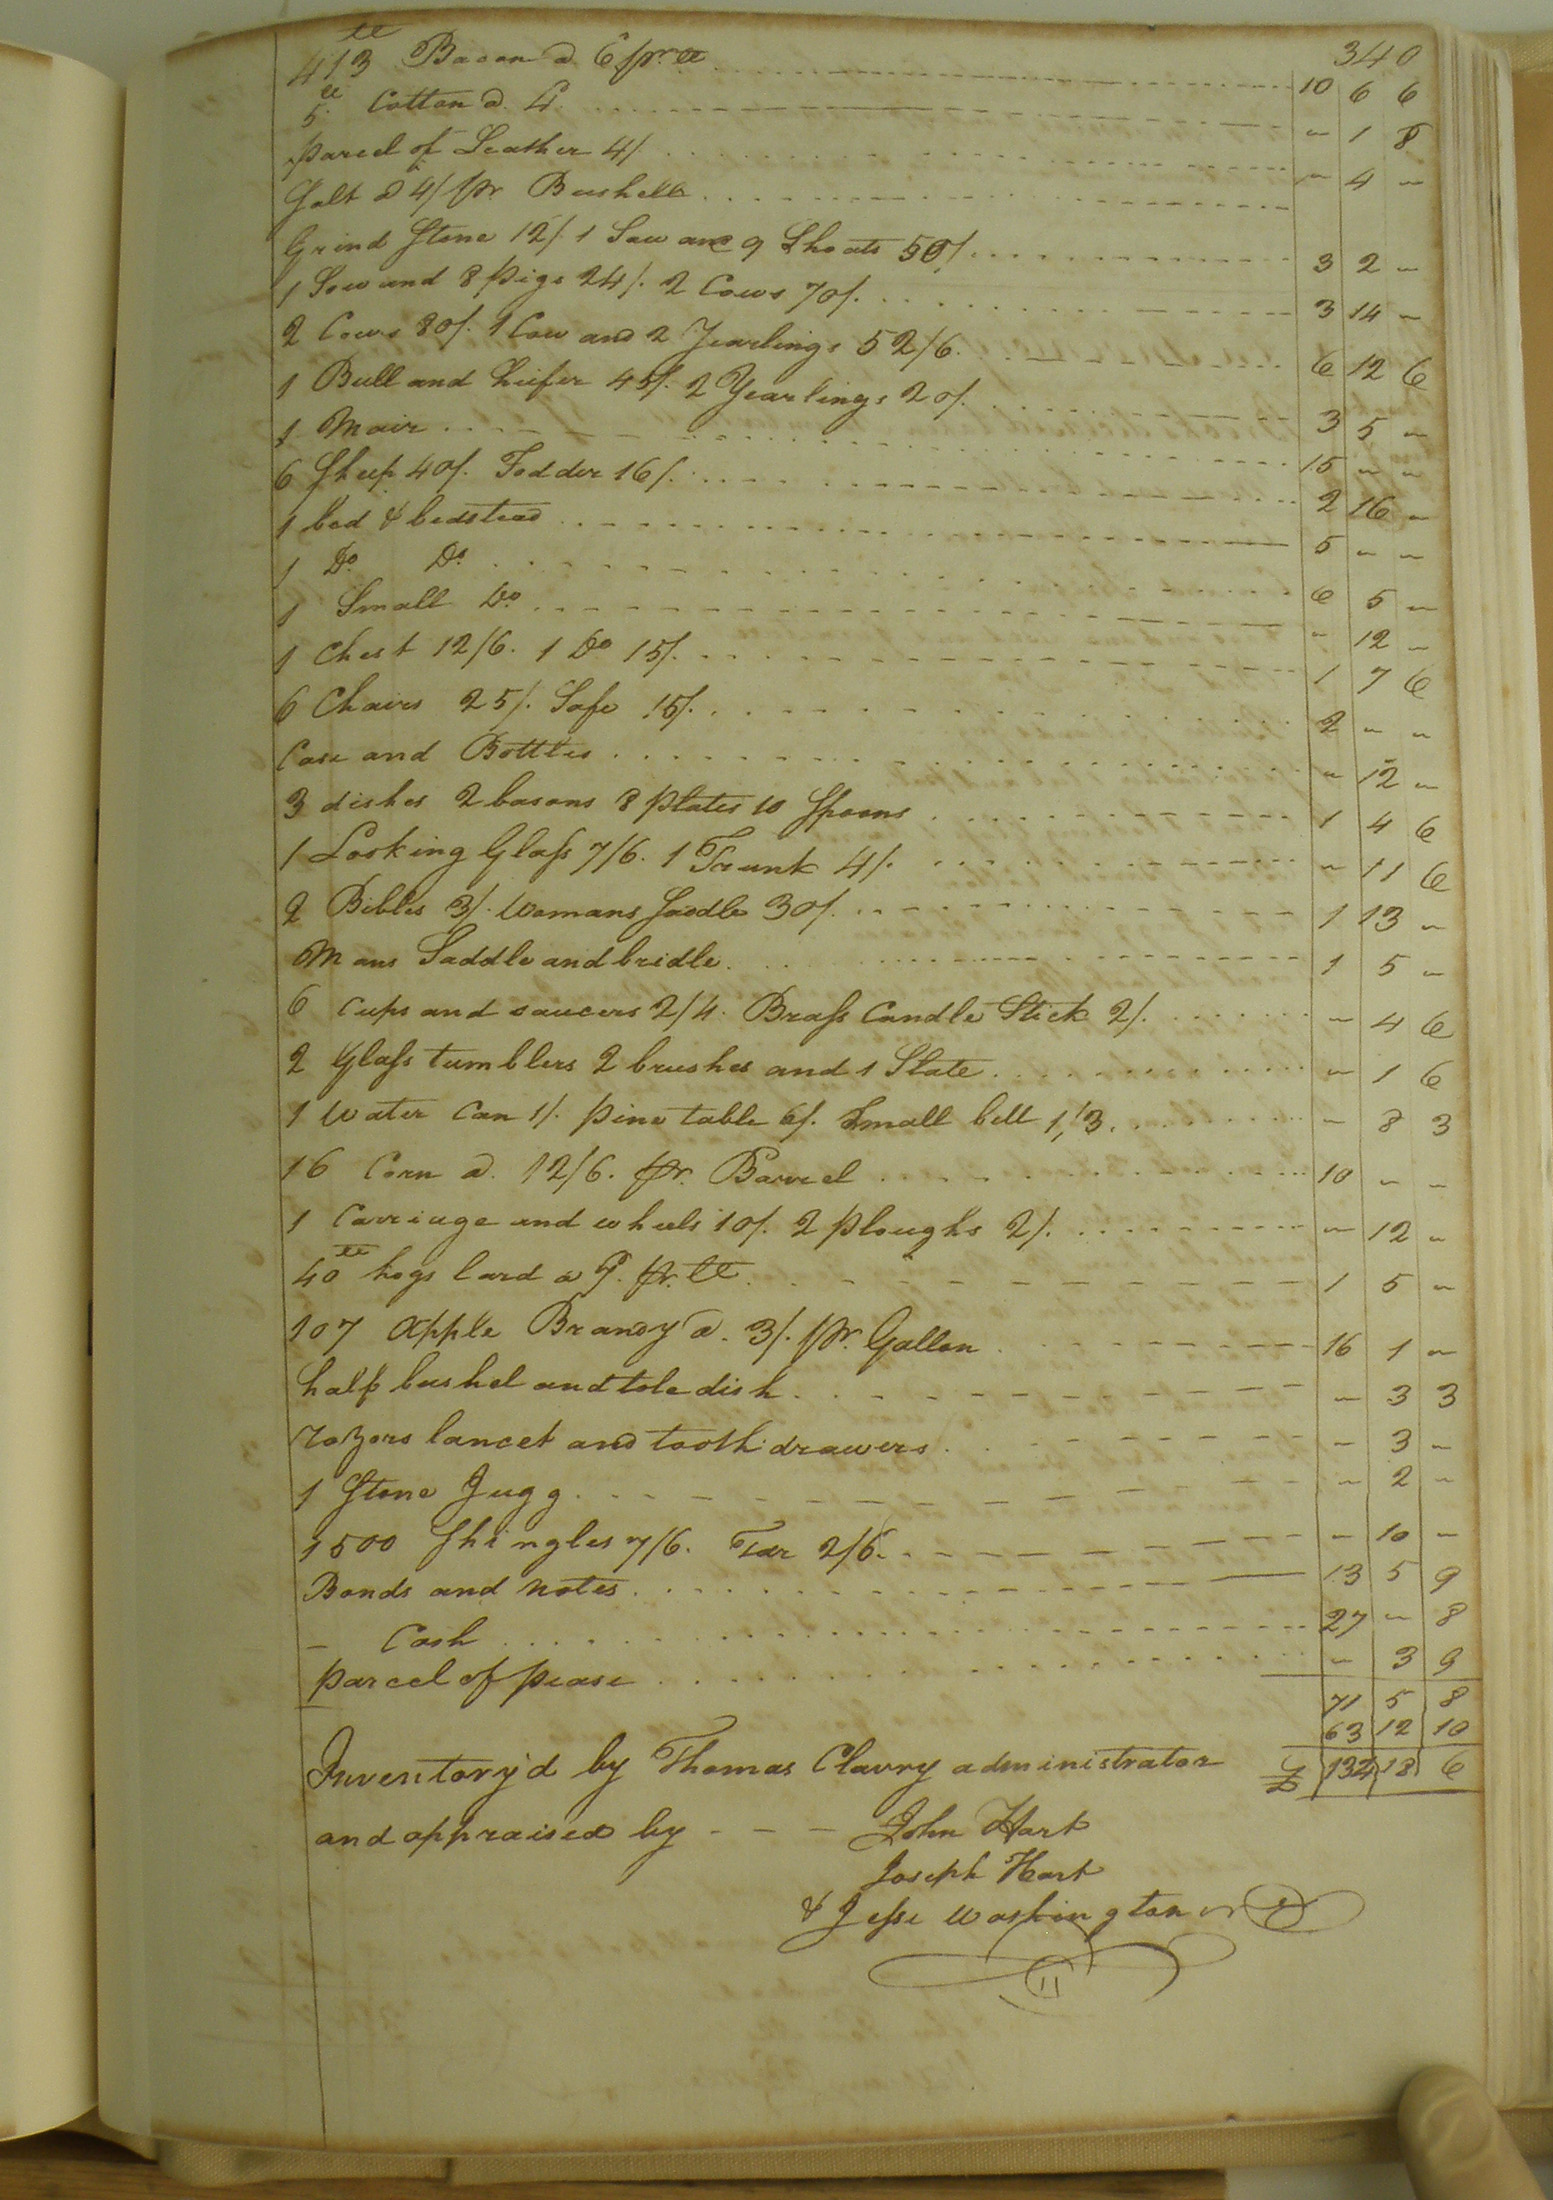 340
413 ll Bacon @ 6 pr. ll 10 6 6
5 ll Cotton @ 4 " 1 8
parcel of Leather 4/ " 4 "
Salt @ 4/ pr. Bushell
Grind Stone 12/ 1 Sow and 9 Shoats 50/. 3 2 "
1 Sow and 8 pigs 24/. 2 Cows 70/. 3 14 "
2 Cows 80/. 1 Cow and 2 Yearlings 52/6. 6 12 6
1 Bull and heifer 45/. 2 Yearlings 20/. 3 5 "
1 Mair 15 " "
6 Sheep 40/. Fodder 16/. 2 16 "
1 bed & bedstead 5 " "
1 Do. Do. 6 5 "
1 Small Do " 12 "
1 Chest 12/6. 1 Do 15/. 1 7 6
6 Chairs 25/. Safe 15/. 2 " "
Case and Bottles " 12 "
3 dishes 2 basons 8 plates 10 Spoons 1 4 6
1 Looking Glass 7/6. 1 Trunk 4/. " 11 6
2 Bibles 3/. Womans Saddle 30/. 1 13 "
Mans Saddle and bridle. 1 5 "
6 Cups and saucers 2/4. Brass Candle Stick 2/. " 4 6
2 Glass tumblers 2 brushes and 1 Slate. " 1 6
1 Water Can 1/. pine table 6/. Small bell 1/3. " 8 3
16 Corn @. 12/6. pr. Barrel 10 " "
1 Carriage and wheels 10/. 2 ploughs 2/. " 12 "
40 ll hogs lard @ pr. ll. 1 5 "
107 Apple Brandy @. 3/. pr. Gallon 16 1 "
half bushel and tole dish " 3 3
razors lancet and tooth drawers " 3 "
1 Stone Jugg " 2 "
1500 Shingles 7/6. Tar 2/6. " 10 "
Bonds and notes 13 5 9
– Cash 27 " 8
parcel of pease " 3 9
71 5 8
63 12 10
£ 134 18 6
Inventory'd by Thomas Clavry administrator
and appraised by - - - John Hart
Joseph Hart
& Jesse Washington